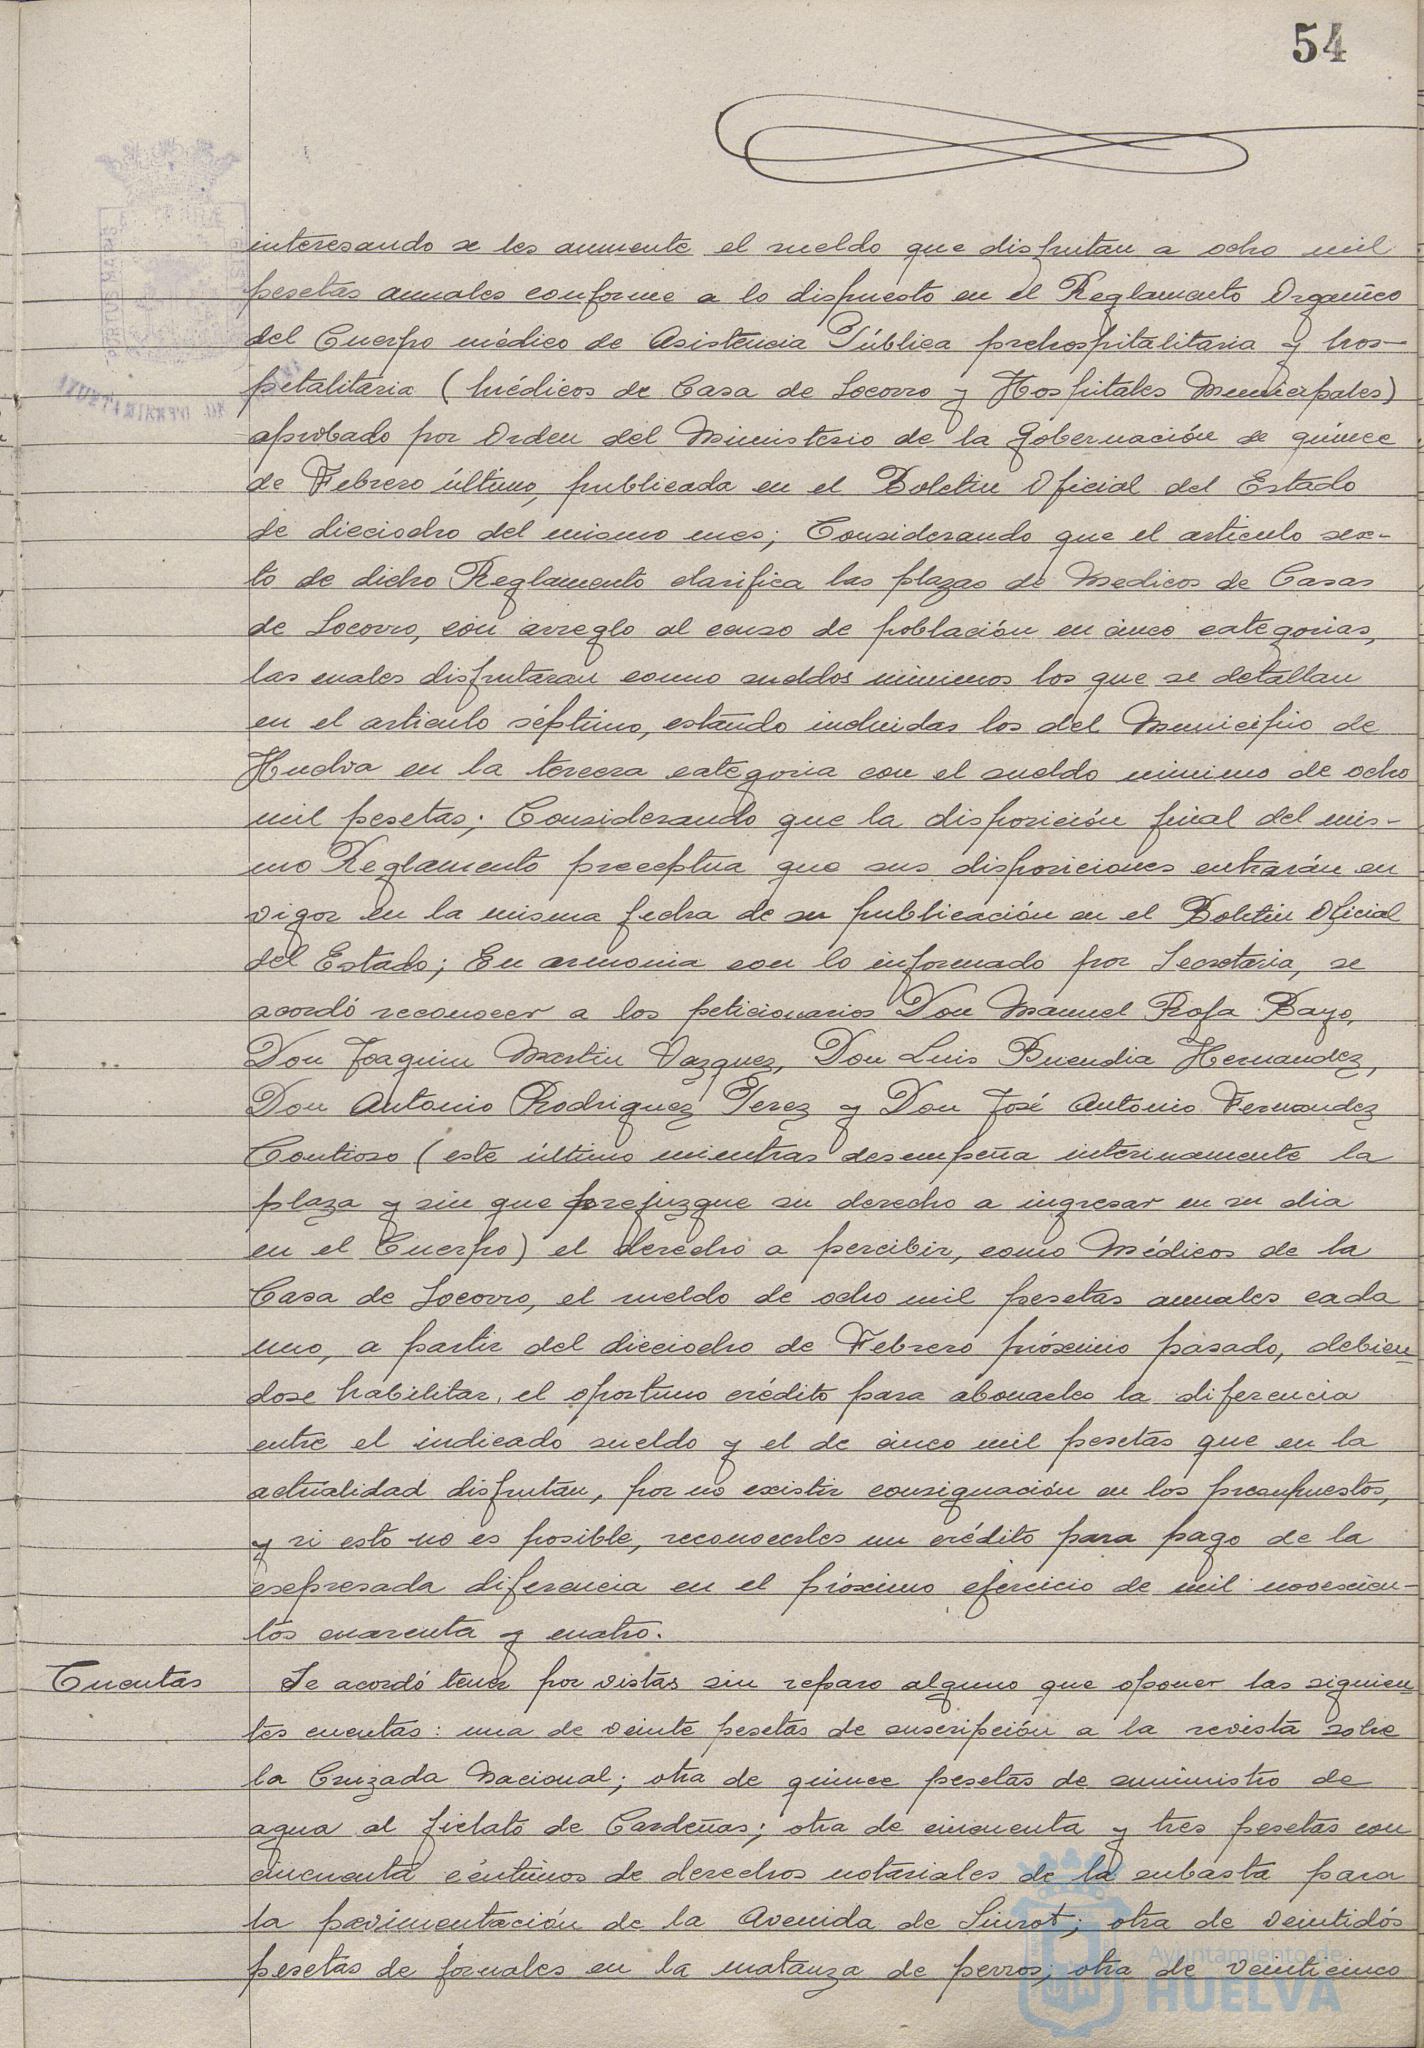 54
interesando se les aumente el sueldo que disfrutan a ocho mil
pesetas anuales conforme a lo dispuesto en el Reglamento Organico
del Cuerpo médico de Asistencia Pública prehospitalitaria y hos-
pitalitaria (Médicos de Casa de Socorro y Hospitales Municipales)
aprobado por Orden del Ministerio de la Gobernación de quince
de Febrero último, publicada en el Boletin Oficial del Estado
de dieciocho del mismo mes; Considerando que el articulo sex-
to de dicho Reglamento clasifica las plazas de Medicos de Casas
de Socorro, con arreglo al censo de población en cinco categorias,
las cuales disfrutaran como sueldos minimos los que se detallan
en el articulo séptimo, estando incluidas los del Municipio de
Huelva en la tercera categoria con el sueldo minimo de ocho
mil pesetas; Considerando que la disposición final del mis-
mo Reglamento preceptua que sus disposiciones entrarán en
vigor en la misma fecha de su publicación en el Boletin Oficial
del Estado; En armonia con lo informado por Secretaria, se
acordó reconocer a los peticionarios Don Manuel Rofa Bayo,
Don Joaquin Martin Vazquez, Don Luis Buendia Hernandez,
Don Antonio Rodriguez Perez y Don José Antonio Fernandez
Contioso (este último mientras desempeña interinamente la
plaza y sin que prejuzgue su derecho a ingresar en su dia
en el Cuerpo) el derecho a percibir, como Médicos de la
Casa de Socorro, el sueldo de ocho mil pesetas anuales cada
uno, a partir del dieciocho de Febrero próximo pasado, debien-
dose habilitar el oportuno crédito para abonarles la diferencia
entre el indicado sueldo y el de cinco mil pesetas que en la
actualidad disfrutan, por no existir consignación en los presupuestos,
y si esto no es posible, reconocerles un crédito para pago de la
expresada diferencia en el próximo ejercicio de mil novecien-
tos cuarenta y cuatro.
Cuentas Se acordó tener por vistas sin reparo alguno que oponer las siguien-
tes cuentas: una de veinte pesetas de suscripción a la revista sobre
la Cruzada Nacional; otra de quince pesetas de suministro de
agua al fielato de Cardeñas; otra de cincuenta y tres pesetas con
cincuenta céntimos de derechos notariales de la subasta para
la pavimentación de la Avenida de Siurot; otra de veintidós
pesetas de jornales en la matanza de perros; otra de veinticinco
Ayuntamiento de
HUELVA